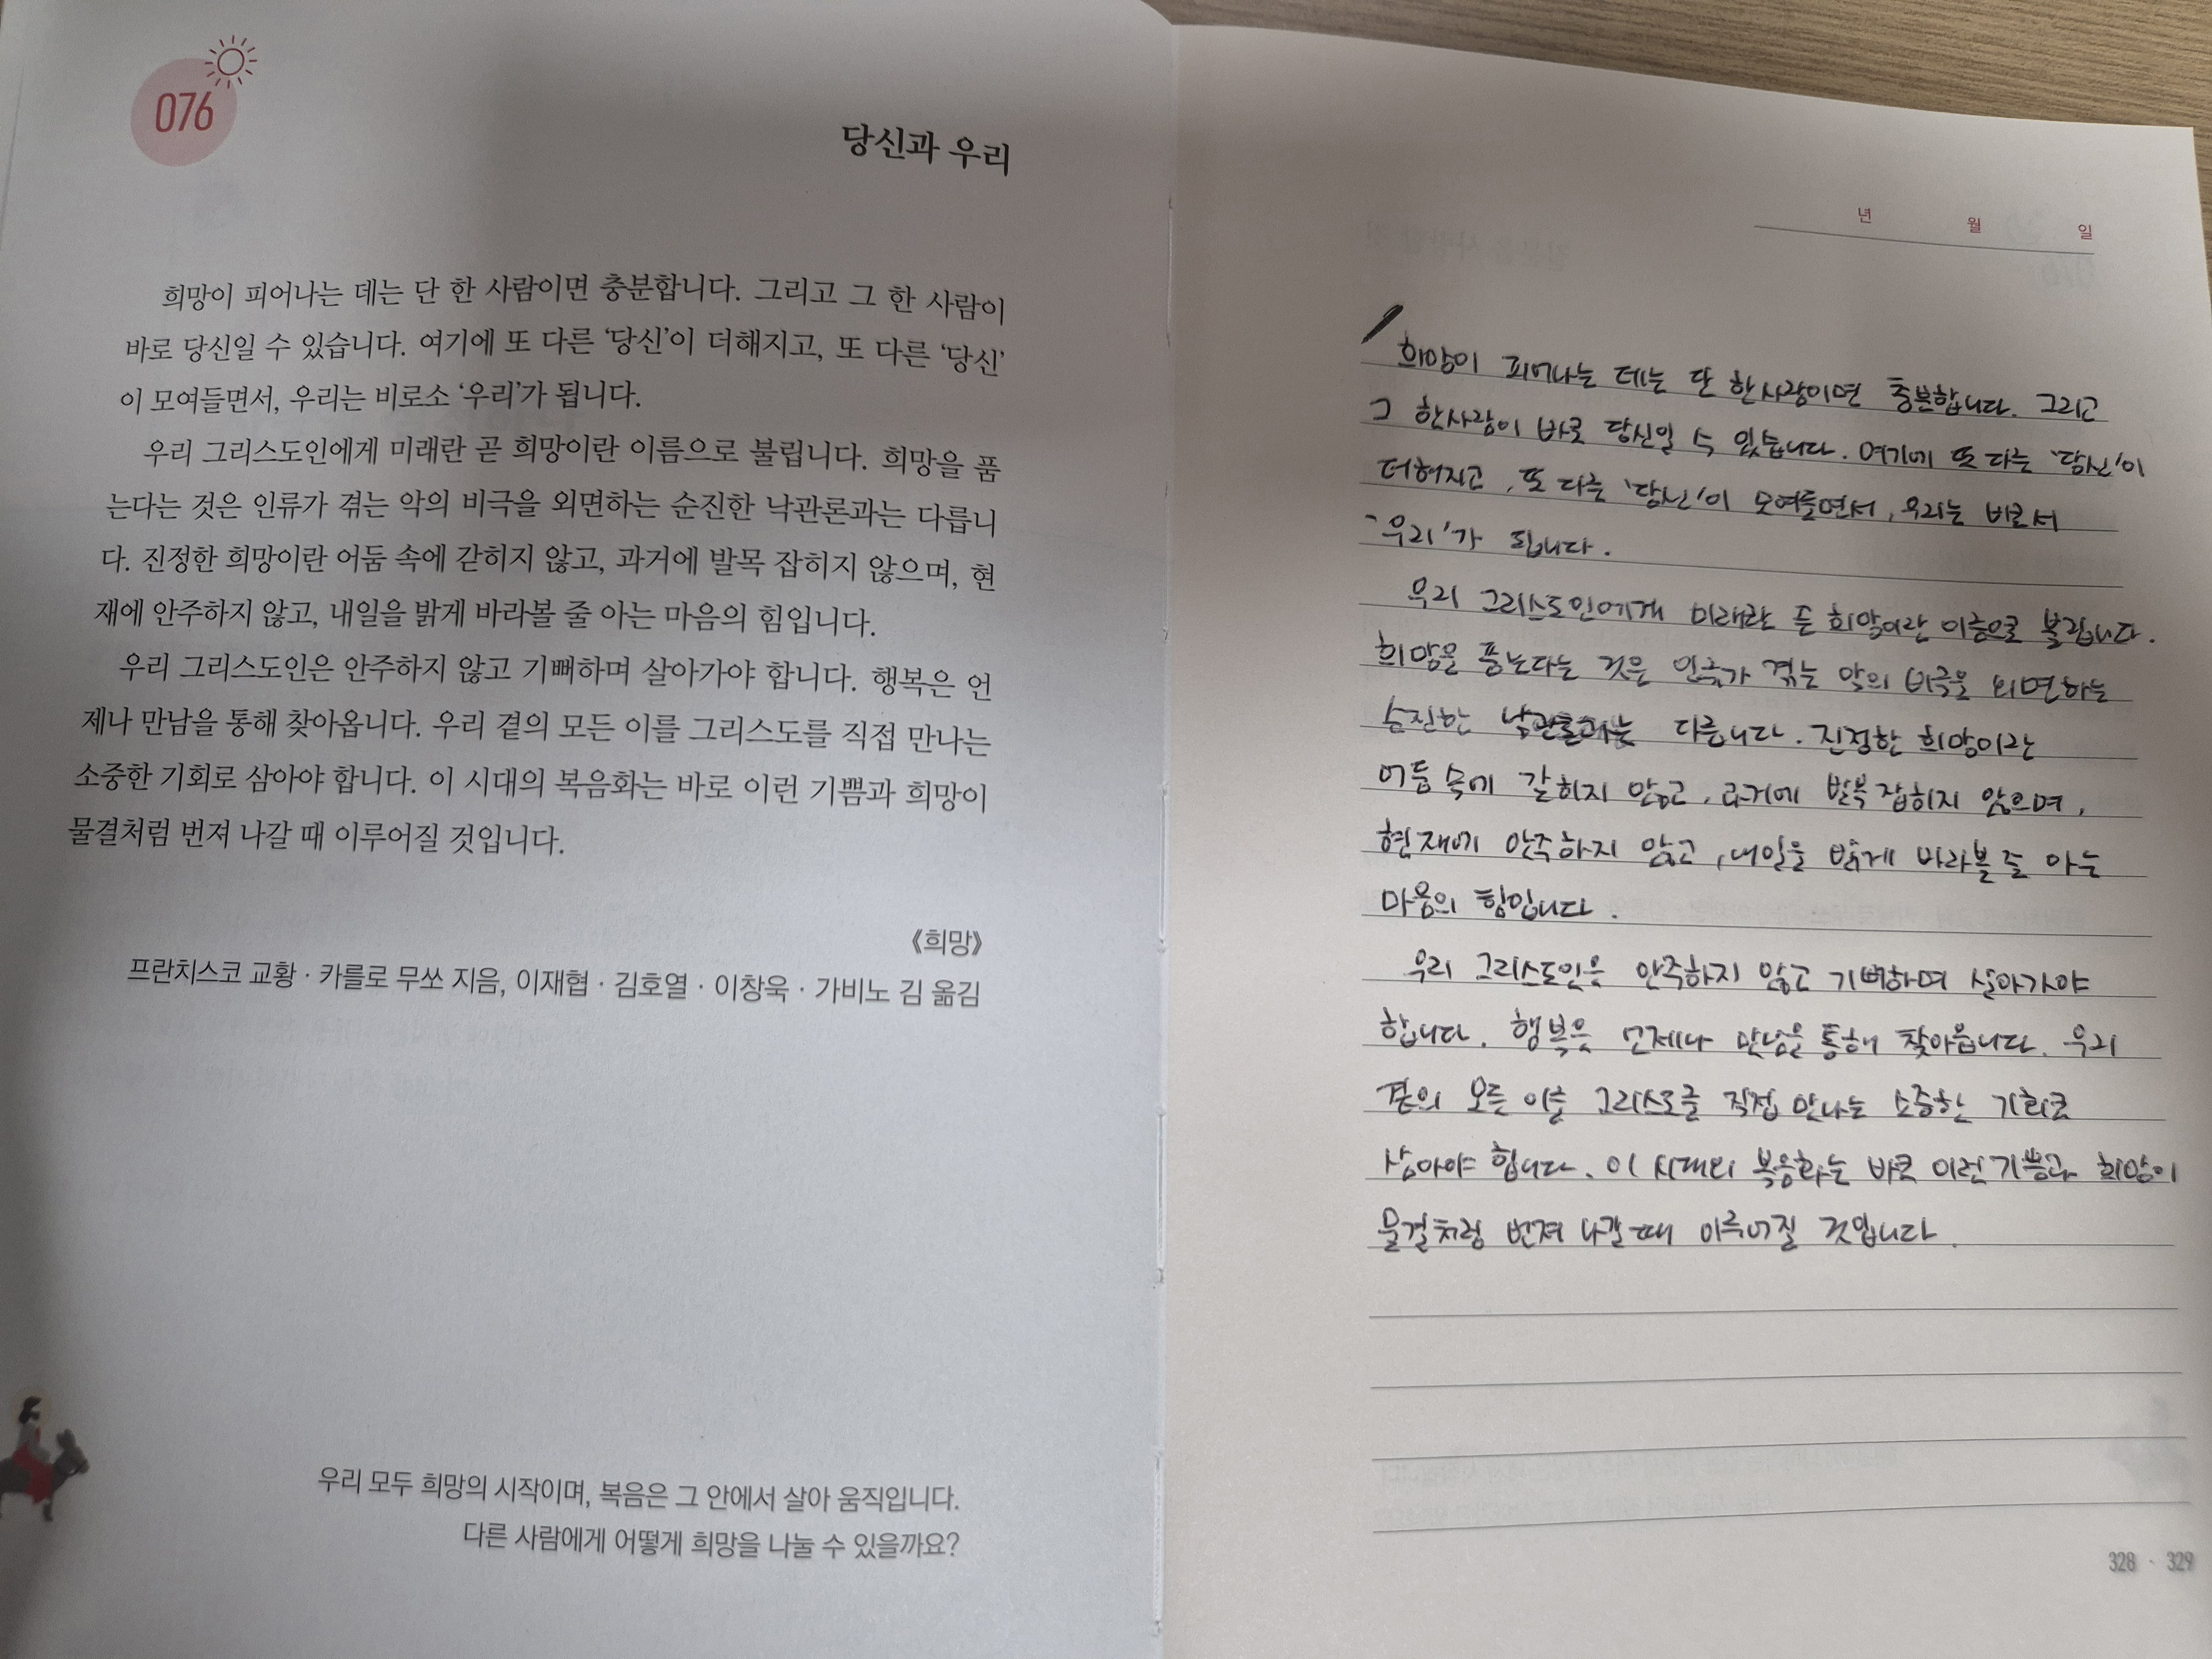 076
당신과 우리
희망이 피어나는 데는 단 한 사람이면 충분합니다. 그리고 그 한 사람이
바로 당신일 수 있습니다. 여기에 또 다른 ‘당신’이 더해지고, 또 다른 ‘당신’
이 모여들면서, 우리는 비로소 ‘우리’가 됩니다.
우리 그리스도인에게 미래란 곧 희망이란 이름으로 불립니다. 희망을 품
는다는 것은 인류가 겪는 악의 비극을 외면하는 순진한 낙관론과는 다릅니
다. 진정한 희망이란 어둠 속에 갇히지 않고, 과거에 발목 잡히지 않으며, 현
재에 안주하지 않고, 내일을 밝게 바라볼 줄 아는 마음의 힘입니다.
우리 그리스도인은 안주하지 않고 기뻐하며 살아가야 합니다. 행복은 언
제나 만남을 통해 찾아옵니다. 우리 곁의 모든 이를 그리스도를 직접 만나는
소중한 기회로 삼아야 합니다. 이 시대의 복음화는 바로 이런 기쁨과 희망이
물결처럼 번져 나갈 때 이루어질 것입니다.
《희망》
프란치스코 교황 · 카를로 무쏘 지음, 이재협 · 김호열 · 이창욱 · 가비노 김 옮김
우리 모두 희망의 시작이며, 복음은 그 안에서 살아 움직입니다.
다른 사람에게 어떻게 희망을 나눌 수 있을까요?
년 월 일
희망이 피어나는 데는 단 한사람이면 충분합니다. 그리고
그 한사람이 바로 당신일 수 있습니다. 여기에 또 다른 ‘당신’이
더해지고, 또 다른 ‘당신’이 모여들면서, 우리는 비로서
‘우리’가 됩니다.
우리 그리스도인에게 미래란 희망이란 이름으로 불립니다.
희망을 품는다는 것은 인류가 겪는 악의 비극을 외면하는
순진한 낙관론과는 다릅니다. 진정한 희망이란
어둠 속에 갇히지 않고, 과거에 발목 잡히지 않으며,
현재에 안주하지 않고, 내일을 밝게 바라볼 줄 아는
마음의 힘입니다.
우리 그리스도인은 안주하지 않고 기뻐하며 살아가야
합니다. 행복은 언제나 만남을 통해 찾아옵니다. 우리
곁의 모든 이를 그리스도를 직접 만나는 소중한 기회로
삼아야 합니다. 이 시대의 복음화는 바로 이런 기쁨과 희망이
물결처럼 번져 나갈 때 이루어질 것입니다.
328 · 329